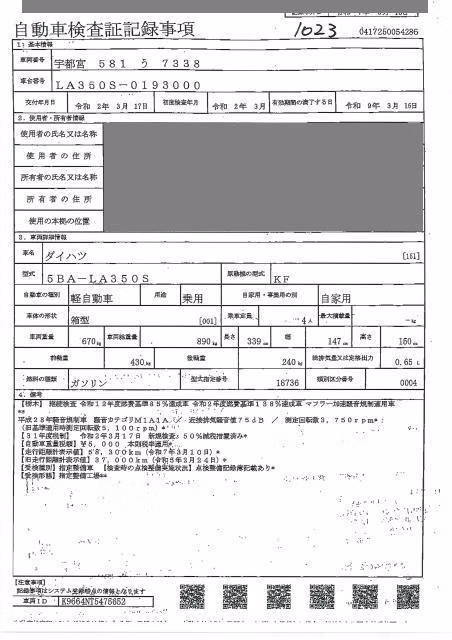 自動車検査証記録事項
1023
0417250054286
1．基本情報
車両番号 宇都宮 581 う 7338
車台番号 LA350S-0193000
交付年月日 令和 2年 3月 17日 初度検査年月 令和 2年 3月 有効期間の満了する日 令和 9年 3月 16日
2．使用者・所有者情報
使用者の氏名又は名称
使用者の住所
所有者の氏名又は名称
所有者の住所
使用の本拠の位置
3．車両詳細情報
車名 ダイハツ [151]
型式 5BA-LA350S 原動機の型式 KF
自動車の種別 軽自動車 用途 乗用 自家用・事業用の別 自家用
車体の形状 箱型 [001] 乗車定員 4人 最大積載量 -kg
車両重量 670kg 車両総重量 890kg 長さ 339cm 幅 147cm 高さ 150cm
前軸重 430kg 後軸重 240kg 総排気量又は定格出力 0.65L
燃料の種類 ガソリン 型式指定番号 18736 類別区分番号 0004
4．備考
【栃木】 継続検査 令和12年度燃費基準85%達成車 令和2年度燃費基準138%達成車 マフラー加速騒音規制適用車
**
平成28年騒音規制車 騒音カテゴリM1A1A ／ 近接排気騒音値75dB ／ 測定回転数3,750rpm*
(旧基準適用時測定回転数5,100rpm)*
【31年度税制】 令和2年3月17日 新規検査:50%減税措置済み*
【自動車重量税額】¥5,000 本則税率適用*
【走行距離計表示値】58,300km(令和7年3月10日)*
【旧走行距離計表示値】37,000km(令和5年2月24日)*
【受検種別】指定整備車 【検査時の点検整備実施状況】点検整備記録簿記載あり*
【受検形態】指定整備工場**
【注意事項】
記録事項はシステム登録時点の情報となります
車両ID K9664NT5475652